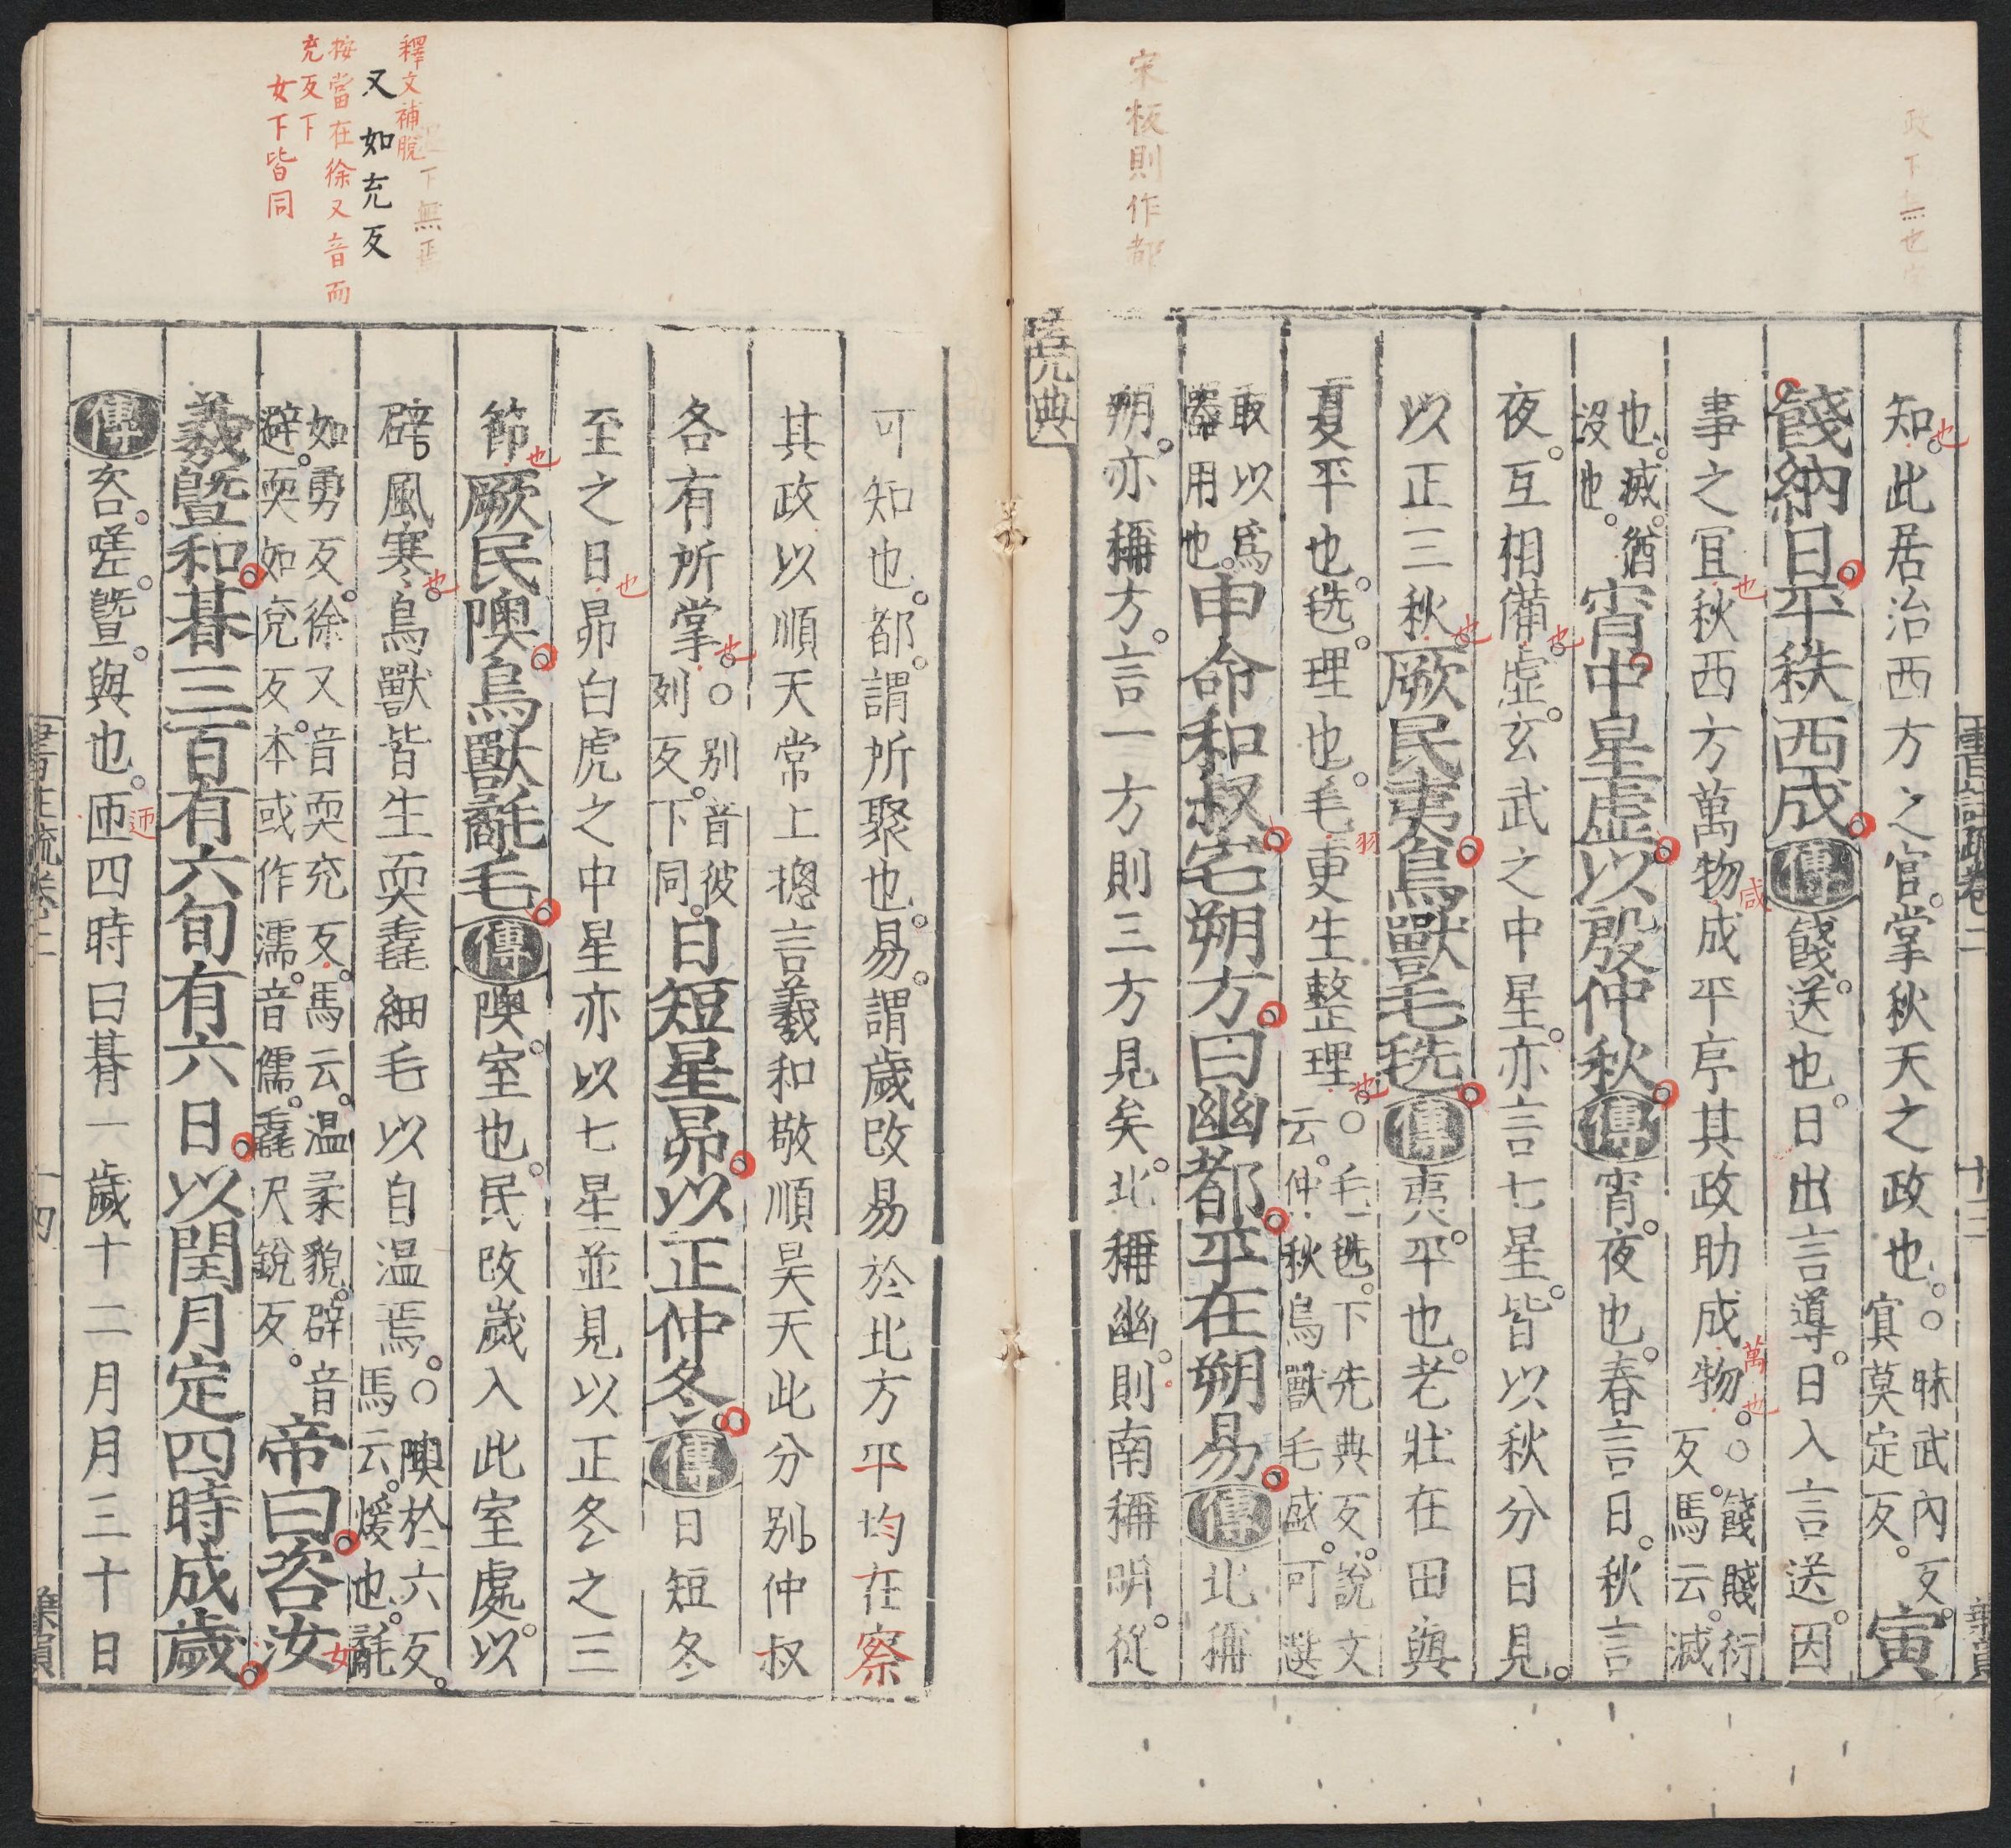 宋板則作都
政下無也
知也此居治西方之官掌秋天之政也○昧武內反寅莫定反寅
餞納日平秩西成傳餞送也日出言導日入言送因
事之宜也秋西方萬物咸成平序其政助成物萬也○餞賤衍反馬云滅
也滅猶沒也宵中星虛以殷仲秋傳宵夜也春言日秋言
夜互相備也虛玄武之中星亦言七星皆以秋分日見
以正三秋也厥民夷鳥獸毛毨傳夷平也老壯在田與
夏平也毨理也毛羽更生整理也○毛毨下先典反說文云仲秋鳥獸毛盛可選
取以爲器用也申命和叔宅朔方曰幽都平在朔易傳北稱
朔亦稱方言一方則三方見矣北稱幽則南稱明從
堯典
釋文補脫
又如充反
按當在徐又音而
充反下
女下皆同
可知也都謂所聚也易謂歲改易於北方平均在察
其政以順天常上揔言羲和敬順昊天此分別仲叔
各有所掌也○別音彼列反下同日短星昴以正仲冬傳日短冬
至之日也昴白虎之中星亦以七星並見以正冬之三
節也厥民隩鳥獸氄毛傳隩室也民改歲入此室處以
辟風寒也鳥獸皆生耎毳細毛以自溫焉○隩於六反馬云煖也氄
如勇反徐又音耎充反馬云溫柔貌辟音避耎如兗反本或作濡音儒毳尺銳反帝曰咨汝女
羲曁和朞三百有六旬有六日以閏月定四時成歲
傳咨嗟曁與也匝迊四時曰朞一歲十二月月三十日